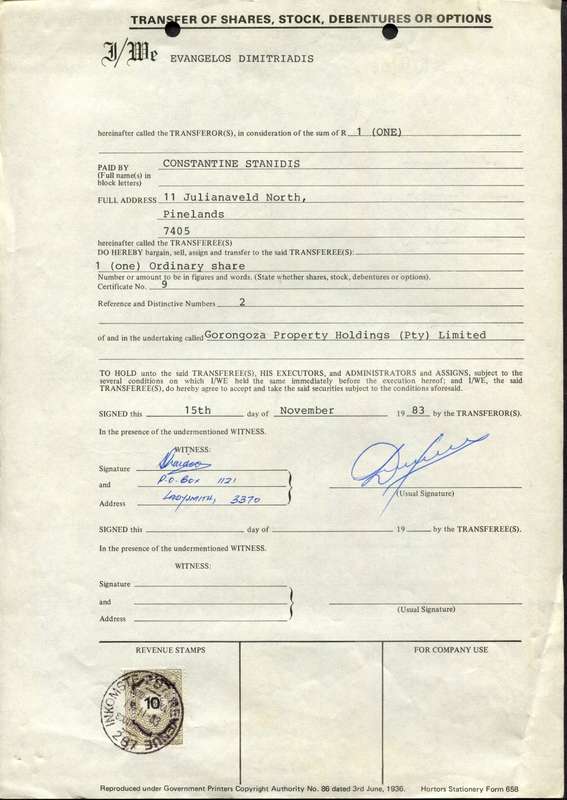 TRANSFER OF SHARES, STOCK, DEBENTURES OR OPTIONS
I/We EVANGELOS DIMITRIADIS
hereinafter called the TRANSFEROR(S), in consideration of the sum of R 1 (ONE)
PAID BY CONSTANTINE STANIDIS
(Full name(s) in
block letters)
FULL ADDRESS 11 Julianaveld North,
Pinelands
7405
hereinafter called the TRANSFEREE(S)
DO HEREBY bargain, sell, assign and transfer to the said TRANSFEREE(S):
1 (one) Ordinary share
Number or amount to be in figures and words. (State whether shares, stock, debentures or options).
Certificate No. 9
Reference and Distinctive Numbers 2
of and in the undertaking called Gorongoza Property Holdings (Pty) Limited
TO HOLD unto the said TRANSFEREE(S), HIS EXECUTORS, and ADMINISTRATORS and ASSIGNS, subject to the
several conditions on which I/WE held the same immediately before the execution hereof; and I/WE, the said
TRANSFEREE(S), do hereby agree to accept and take the said securities subject to the conditions aforesaid.
SIGNED this 15th day of November 19 83 by the TRANSFEROR(S).
In the presence of the undermentioned WITNESS.
WITNESS:
Signature
and P.O. Box 1121
Address LADYSMITH, 3370
(Usual Signature)
SIGNED this day of 19 by the TRANSFEREE(S).
In the presence of the undermentioned WITNESS.
WITNESS:
Signature
and
Address
(Usual Signature)
REVENUE STAMPS
FOR COMPANY USE
INKOMSTE REVENUE
10
287
Reproduced under Government Printers Copyright Authority No. 86 dated 3rd June, 1936. Hortors Stationery Form 658